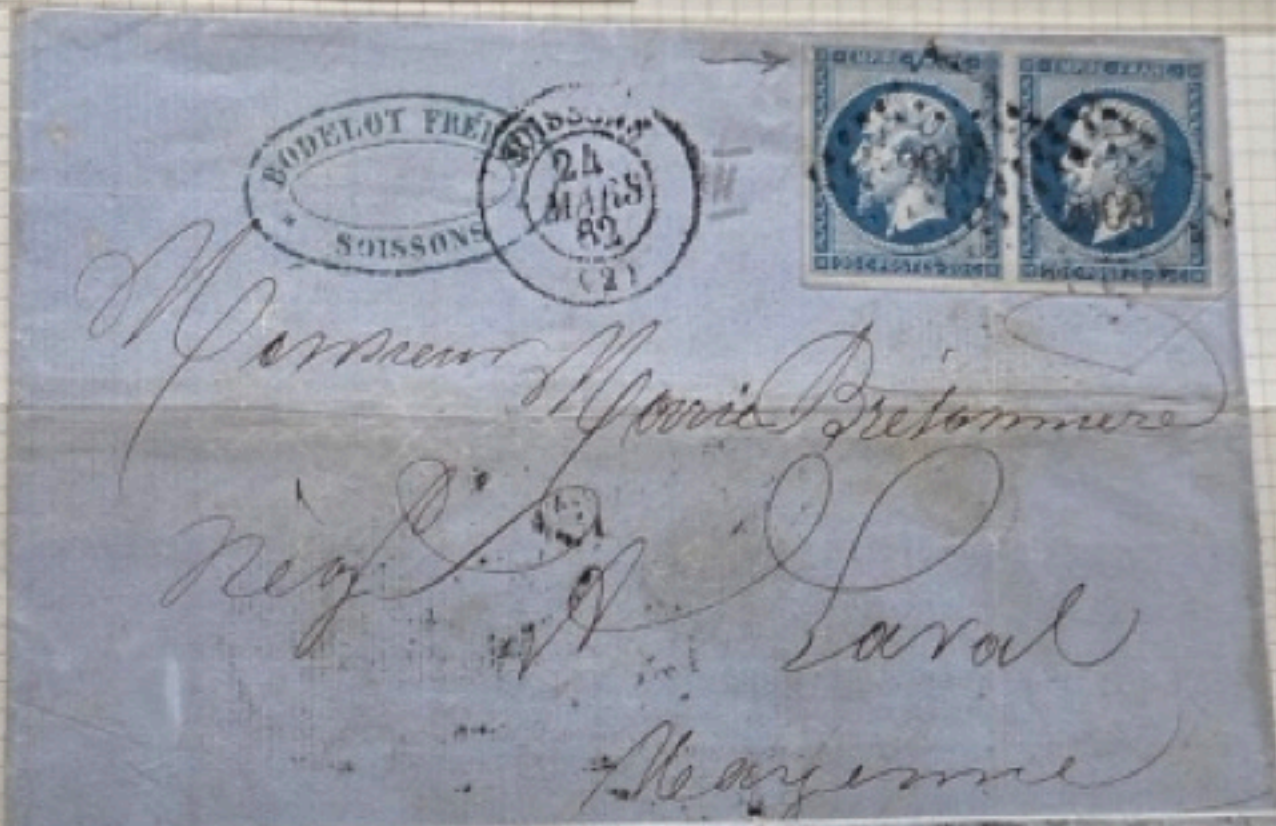 BODELOT FRÉR
SOISSONS
SOISSONS
24
MARS
82
(2)
EMPIRE FRANC.
EMPIRE FRANC.
Monsieur Marie Bretonniere
Nég
à Laval
Mayenne